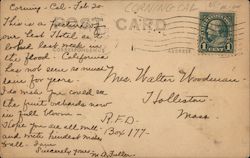 CORNING CAL
Corning - Cal - Feb 20 -
This is a
our last Hotel as it
looked last week in
the flood - California
has not seen so much
rain for years -
I do wish you could see
the fruit orchards now
in full bloom -
Hope you are all well -
and write hundred miles
well. Sam
Sincerely yours,
M. A. Fuller.
POST CARD
CORRESPONDENCE
ADDRESS
1 CENT 1
Mrs. Walter Woodman -
Holliston
Mass
R.F.D. -
Box 177 -